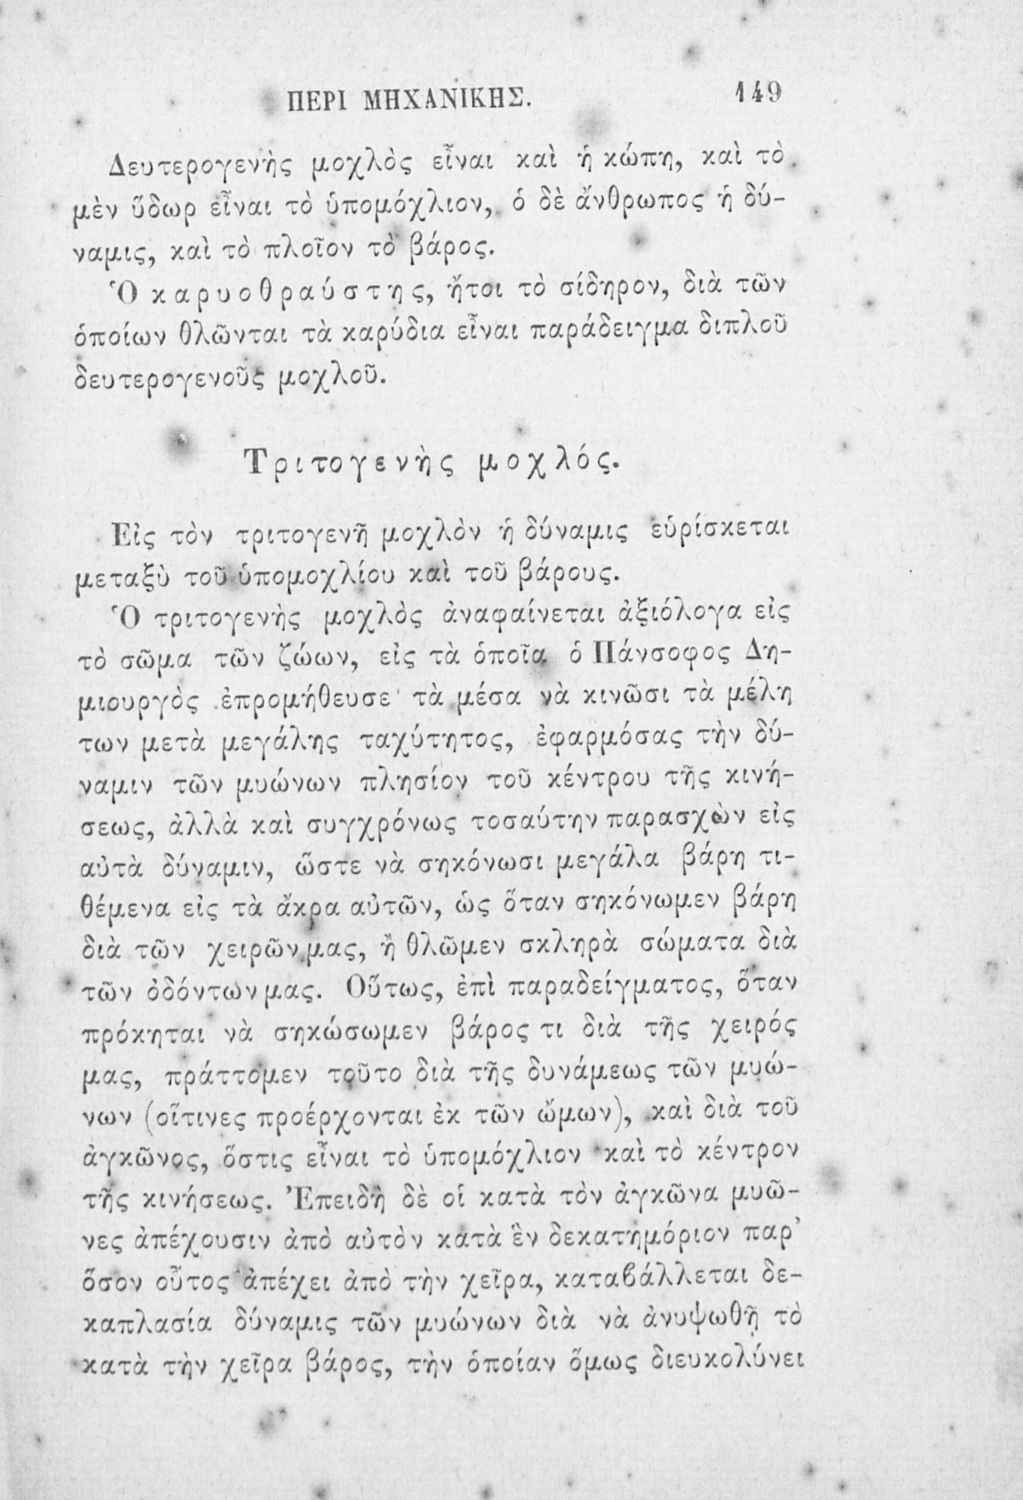 ΠΕΡΙ ΜΗΧΑΝΙΚΗΣ. 149
Δευτερογενὴς μοχλὸς εἶναι καὶ ἡ κώπη, καὶ τὸ
μὲν ὕδωρ εἶναι τὸ ὑπομόχλιον, ὁ δὲ ἄνθρωπος ἡ δύ-
ναμις, καὶ τὸ πλοῖον τὸ βάρος.
Ὁ καρυοθραύστης, ἤτοι τὸ σίδηρον, διὰ τῶν
ὁποίων θλῶνται τὰ καρύδια εἶναι παράδειγμα διπλοῦ
δευτερογενοῦς μοχλοῦ.
Τριτογενὴς μοχλός.
Εἰς τὸν τριτογενῆ μοχλὸν ἡ δύναμις εὑρίσκεται
μεταξὺ τοῦ ὑπομοχλίου καὶ τοῦ βάρους.
Ὁ τριτογενὴς μοχλὸς ἀναφαίνεται ἀξιόλογα εἰς
τὸ σῶμα τῶν ζώων, εἰς τὰ ὁποῖα ὁ Πάνσοφος Δη-
μιουργὸς ἐπρομήθευσε τὰ μέσα νὰ κινῶσι τὰ μέλη
των μετὰ μεγάλης ταχύτητος, ἐφαρμόσας τὴν δύ-
ναμιν τῶν μυώνων πλησίον τοῦ κέντρου τῆς κινή-
σεως, ἀλλὰ καὶ συγχρόνως τοσαύτην παρασχὼν εἰς
αὐτὰ δύναμιν, ὥστε νὰ σηκόνωσι μεγάλα βάρη τι-
θέμενα εἰς τὰ ἄκρα αὐτῶν, ὡς ὅταν σηκόνωμεν βάρη
διὰ τῶν χειρῶν μας, ἢ θλῶμεν σκληρὰ σώματα διὰ
τῶν ὀδόντων μας. Οὕτως, ἐπὶ παραδείγματος, ὅταν
πρόκηται νὰ σηκώσωμεν βάρος τι διὰ τῆς χειρός
μας, πράττομεν τοῦτο διὰ τῆς δυνάμεως τῶν μυώ-
νων (οἵτινες προέρχονται ἐκ τῶν ὤμων), καὶ διὰ τοῦ
ἀγκῶνος, ὅστις εἶναι τὸ ὑπομόχλιον καὶ τὸ κέντρον
τῆς κινήσεως. Ἐπειδὴ δὲ οἱ κατὰ τὸν ἀγκῶνα μυῶ-
νες ἀπέχουσιν ἀπὸ αὐτὸν κατὰ ἓν δεκατημόριον παρ'
ὅσον οὗτος ἀπέχει ἀπὸ τὴν χεῖρα, καταβάλλεται δε-
καπλασία δύναμις τῶν μυώνων διὰ νὰ ἀνυψωθῇ τὸ
κατὰ τὴν χεῖρα βάρος, τὴν ὁποίαν ὅμως διευκολύνει